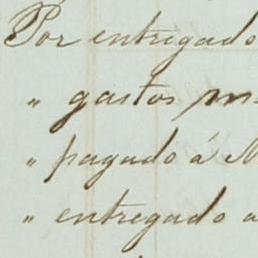 Por entregado
" gastos
" pagado á
" entregado a